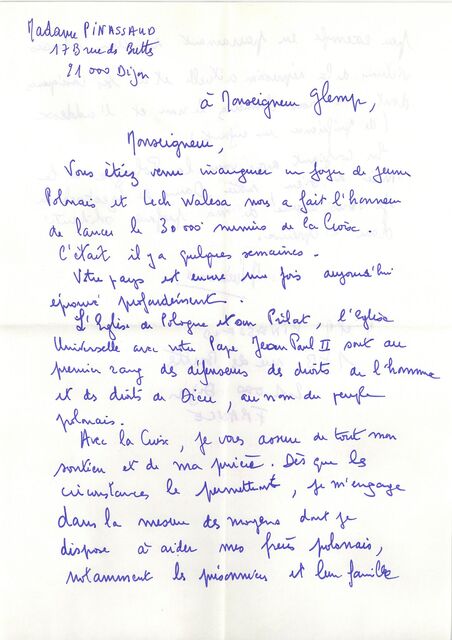 Madame PINASSAUD
173 rue de
21 000 Dijon
à Monseigneur Glemp,
Monseigneur,
Vous étiez venu inaugurer un foyer de jeunes
Polonais et Lech Walesa nous a fait l'honneur
de lancer le 30 000e numéro de la Croix.
C'était il y a quelques semaines.
Votre pays est encore une fois aujourd'hui
éprouvé profondément.
L'Eglise de Pologne et son Prélat, l'Eglise
Universelle avec notre Pape Jean Paul II sont au
premier rang des défenseurs des droits de l'homme
et des droits de Dieu, au nom du peuple
polonais.
Avec la Croix, je vous assure de tout mon
soutien et de ma prière. Dès que les
circonstances le permettront, je m'engage
dans la mesure des moyens dont je
dispose à aider mes frères polonais,
notamment les prisonniers et leur famille